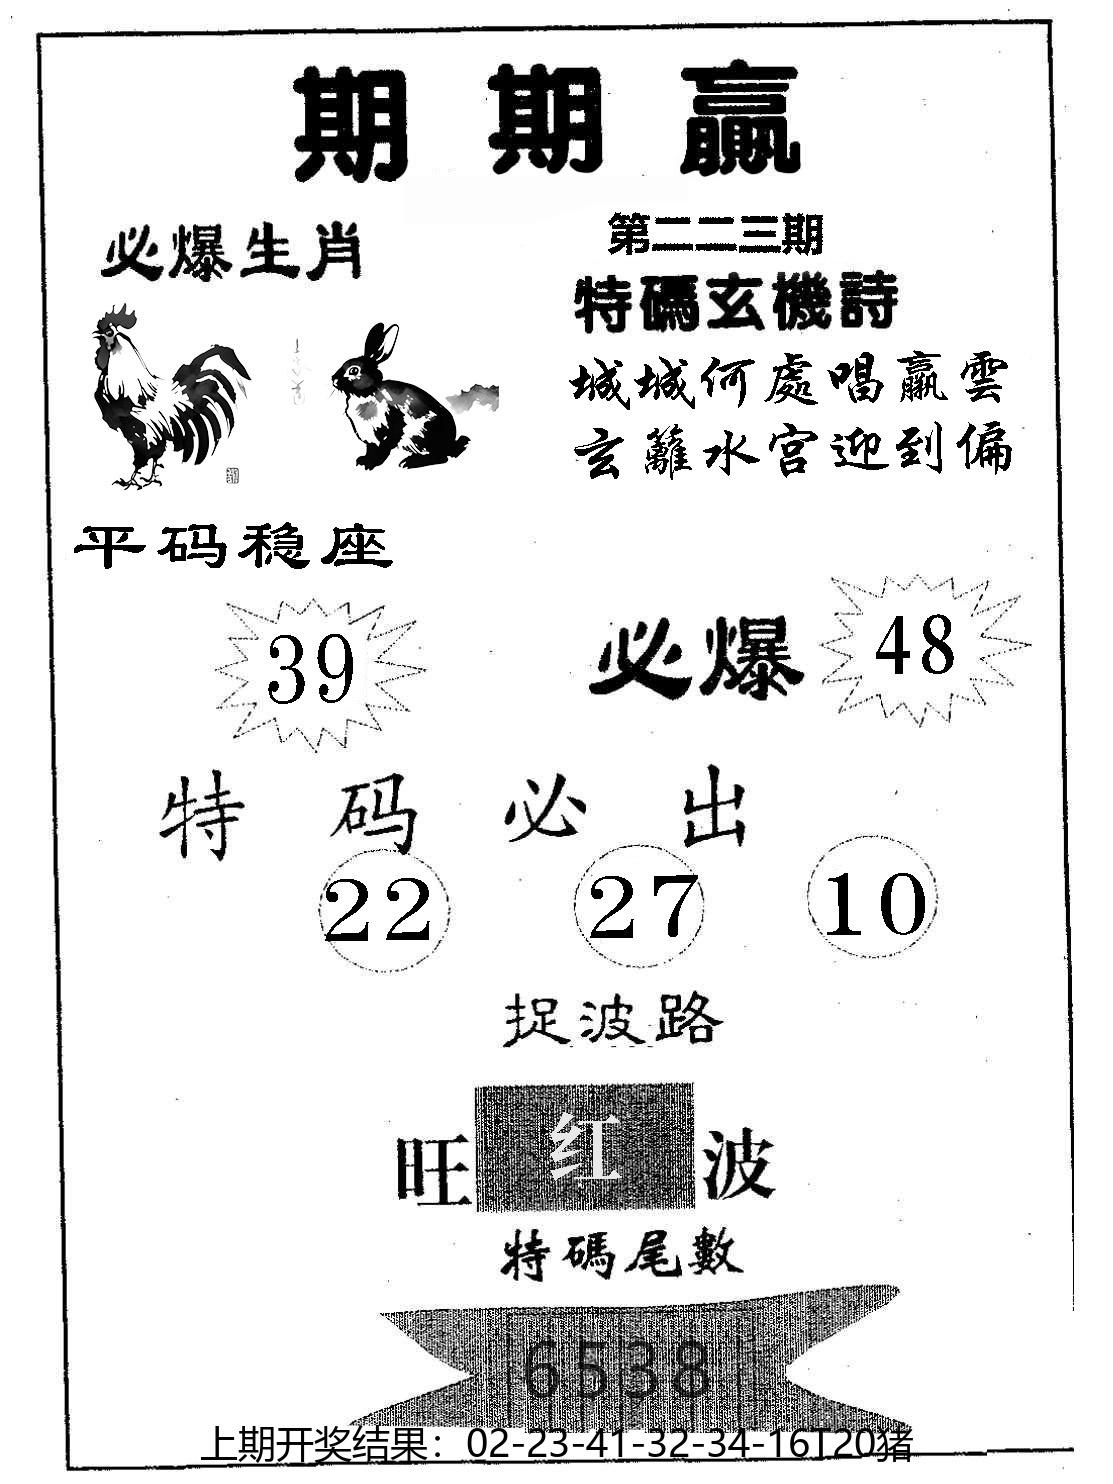 期期贏
必爆生肖
第二二三期
特碼玄機詩
城城何處唱贏雲
玄籬水宫迎到偏
平码稳座
39
必爆 48
特码必出
22 27 10
捉波路
旺 红 波
特碼尾數
6538
上期开奖结果：02-23-41-32-34-16T20猪